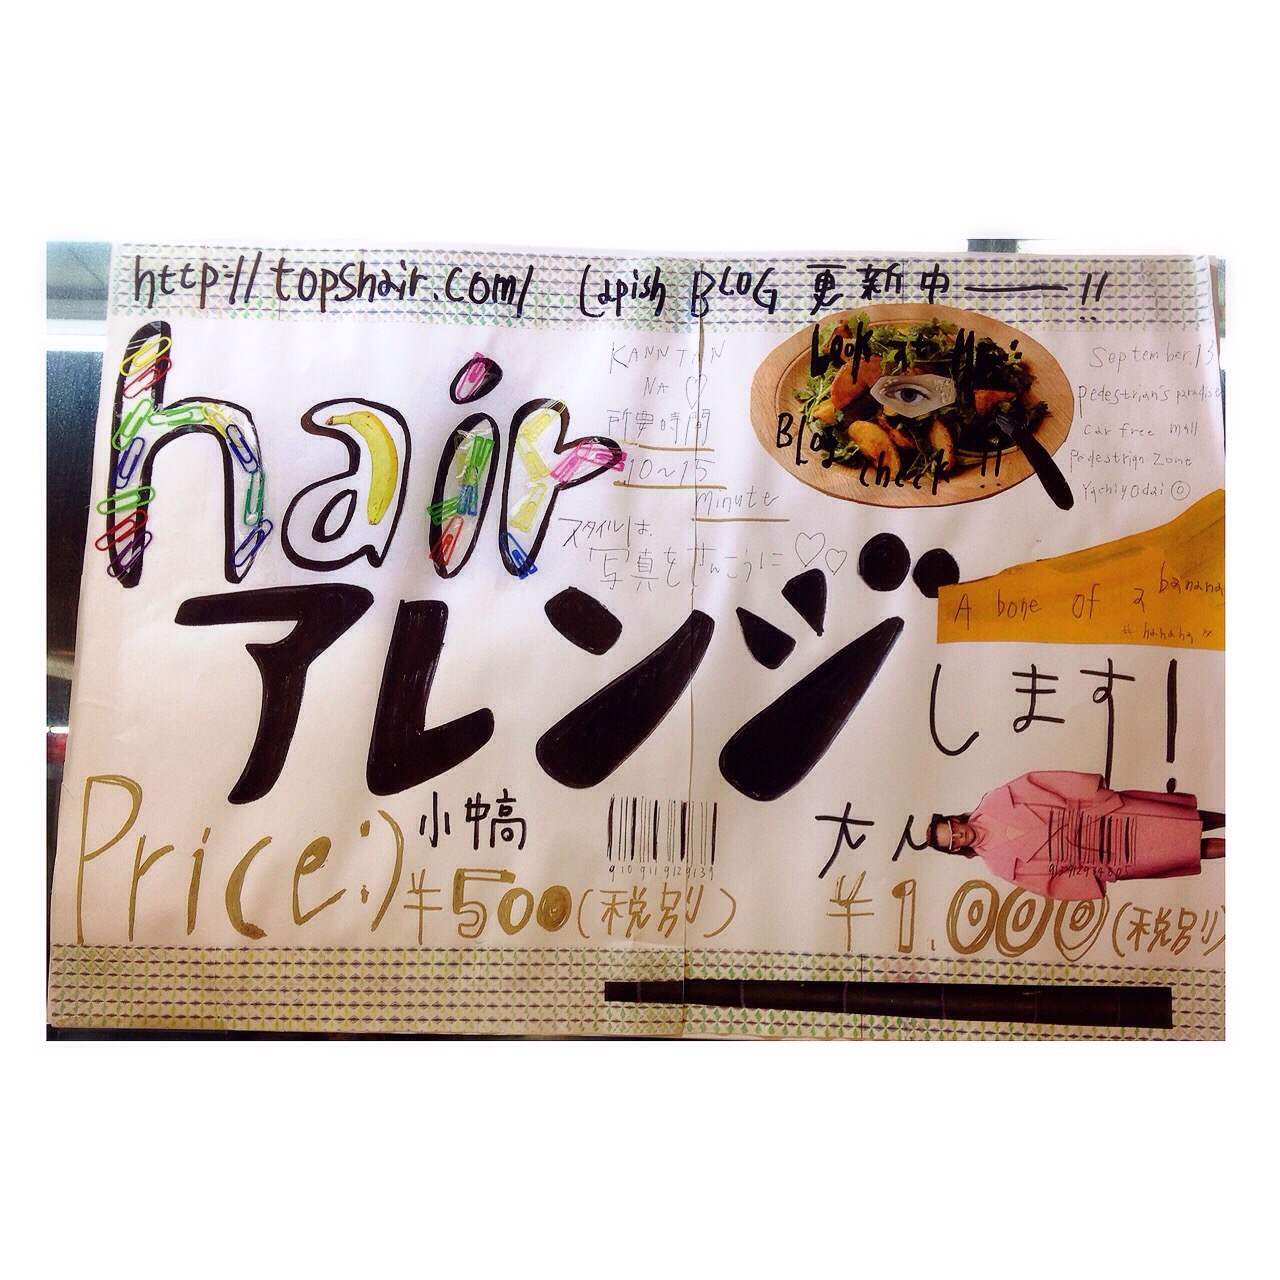 http://topshair.com/ Lapish BLOG 更新中——!!
hair
KANNTAN
NA ♡
所要時間
10～15
minute
スタイルは、
写真をさんこうに♡♡
Look at
Blog
check !!
September.13
Pedestrian's paradise
car free mall
Pedestrian Zone
Yachiyodai ◎
アレンジ
します!
A bone of a banana
"banana"
Price:)
小中高
¥500(税別)
大人
¥1.000(税別)